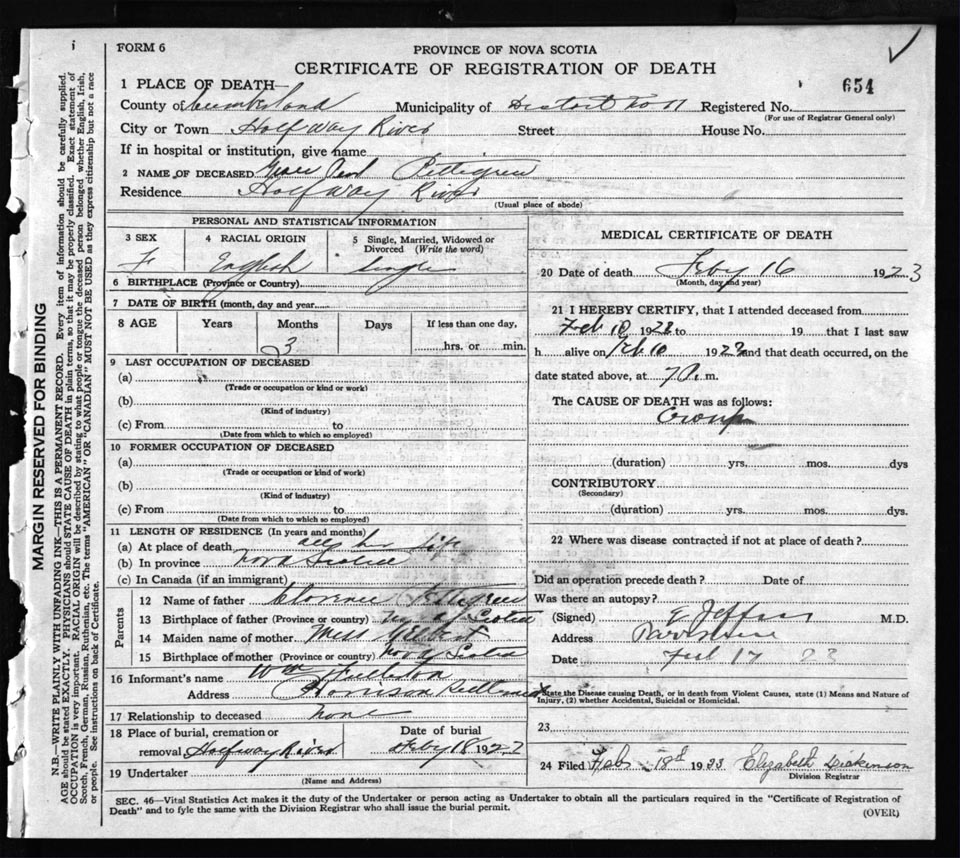 FORM 6
PROVINCE OF NOVA SCOTIA
CERTIFICATE OF REGISTRATION OF DEATH
654
1 PLACE OF DEATH—
County of Cumberland Municipality of District No 11 Registered No.
(For use of Registrar General only)
City or Town Halfway River Street House No.
If in hospital or institution, give name
2 NAME OF DECEASED Grace Pettigrew
Residence Halfway River
(Usual place of abode)
PERSONAL AND STATISTICAL INFORMATION
3 SEX 4 RACIAL ORIGIN 5 Single, Married, Widowed or Divorced (Write the word)
F English Single
6 BIRTHPLACE (Province or Country)
7 DATE OF BIRTH (month, day and year)
8 AGE Years Months Days If less than one day,
3 hrs. or min.
9 LAST OCCUPATION OF DECEASED
(a)
(Trade or occupation or kind of work)
(b)
(Kind of industry)
(c) From to
(Date from which to which so employed)
10 FORMER OCCUPATION OF DECEASED
(a)
(Trade or occupation or kind of work)
(b)
(Kind of industry)
(c) From to
(Date from which to which so employed)
11 LENGTH OF RESIDENCE (In years and months)
(a) At place of death all her life
(b) In province Nova Scotia
(c) In Canada (if an immigrant)
Parents
12 Name of father Clarence Pettigrew
13 Birthplace of father (Province or country) Scotia
14 Maiden name of mother Miss
15 Birthplace of mother (Province or country) Nova Scotia
16 Informant's name Wm
Address Harrison Settlement
17 Relationship to deceased none
18 Place of burial, cremation or Date of burial
removal Halfway River Feby 18 1923
19 Undertaker
(Name and Address)
MEDICAL CERTIFICATE OF DEATH
20 Date of death Feby 16 1923
(Month, day and year)
21 I HEREBY CERTIFY, that I attended deceased from
Feb 10 1923 to 19 that I last saw
h alive on Feb 10 1923 and that death occurred, on the
date stated above, at 7 P. m.
The CAUSE OF DEATH was as follows:
Croup
(duration) yrs. mos. dys
CONTRIBUTORY
(Secondary)
(duration) yrs. mos. dys.
22 Where was disease contracted if not at place of death?
Did an operation precede death? Date of
Was there an autopsy?
(Signed) M.D.
Address Parrsboro
Date Feb 17 23
State the Disease causing Death, or in death from Violent Causes, state (1) Means and Nature of
Injury, (2) whether Accidental, Suicidal or Homicidal.
23
24 Filed Feb 18th 1923 Elizabeth Dickinson
Division Registrar
SEC. 46—Vital Statistics Act makes it the duty of the Undertaker or person acting as Undertaker to obtain all the particulars required in the "Certificate of Registration of
Death" and to fyle the same with the Division Registrar who shall issue the burial permit.
(OVER)
MARGIN RESERVED FOR BINDING
N.B.—WRITE PLAINLY WITH UNFADING INK—THIS IS A PERMANENT RECORD. Every item of information should be carefully supplied.
AGE should be stated EXACTLY. PHYSICIANS should STATE CAUSE OF DEATH in plain terms, so that it may be properly classified. Exact statement of
OCCUPATION is very important. RACIAL ORIGIN will be described by stating to what people or tongue the deceased person belonged whether English, Irish,
Scotch, French, German, Russian, Ruthenian, etc. The terms "AMERICAN" OR "CANADIAN" MUST NOT BE USED as they express citizenship but not a race
or people. See instructions on back of Certificate.